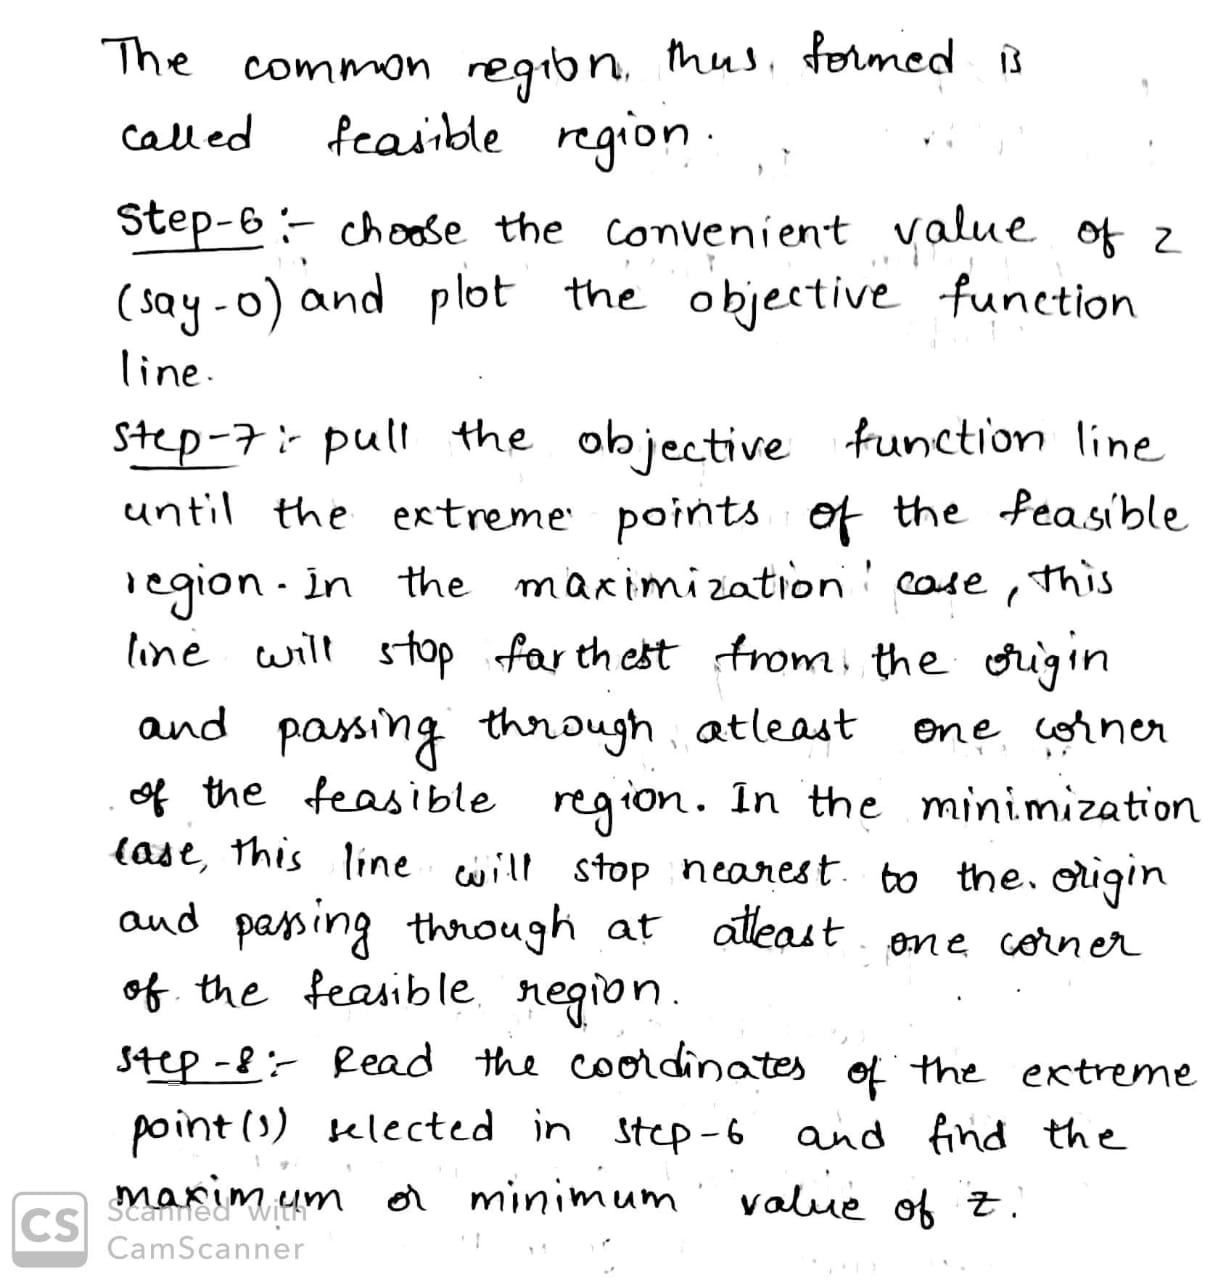 The common region, thus, formed is
called feasible region.
Step-6:- choose the convenient value of z
(say-0) and plot the objective function
line.
Step-7:- pull the objective function line
until the extreme points of the feasible
region. In the maximization case, this
line will stop farthest from the origin
and passing through atleast one corner
of the feasible region. In the minimization
case, this line will stop nearest to the origin
and passing through at atleast one corner
of the feasible region.
Step-8:- Read the coordinates of the extreme
point(s) selected in step-6 and find the
maximum or minimum value of z.
CS Scanned with
CamScanner